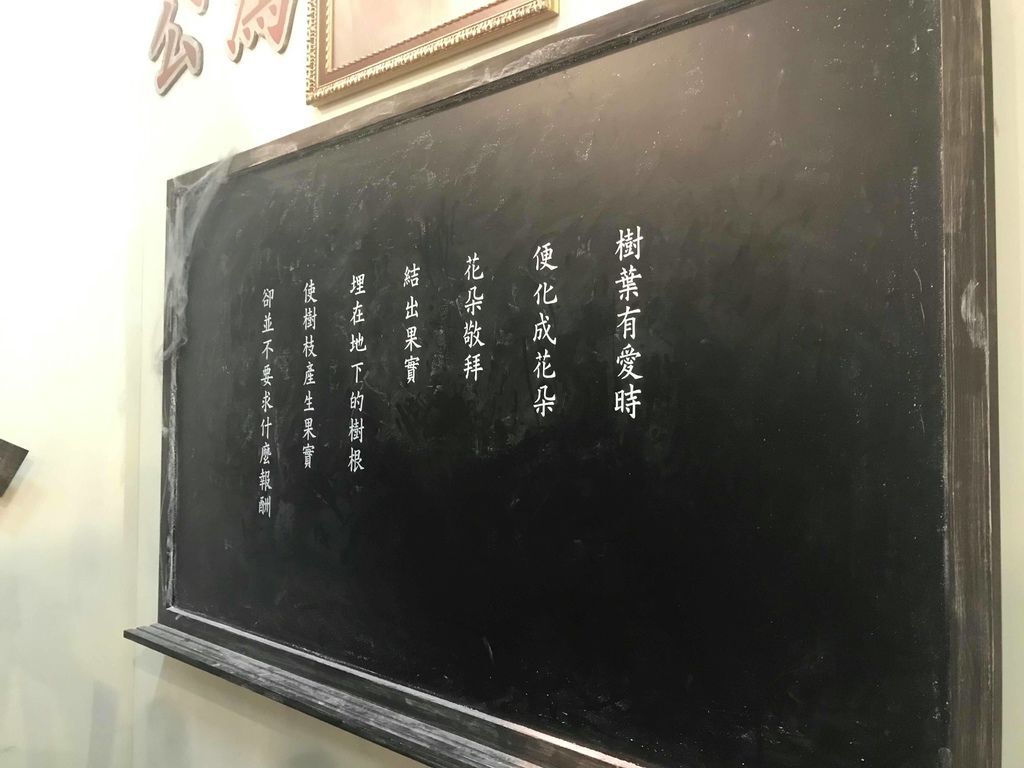 為公
樹葉有愛時
便化成花朵
花朵敬拜
結出果實
埋在地下的樹根
使樹枝產生果實
卻並不要求什麼報酬